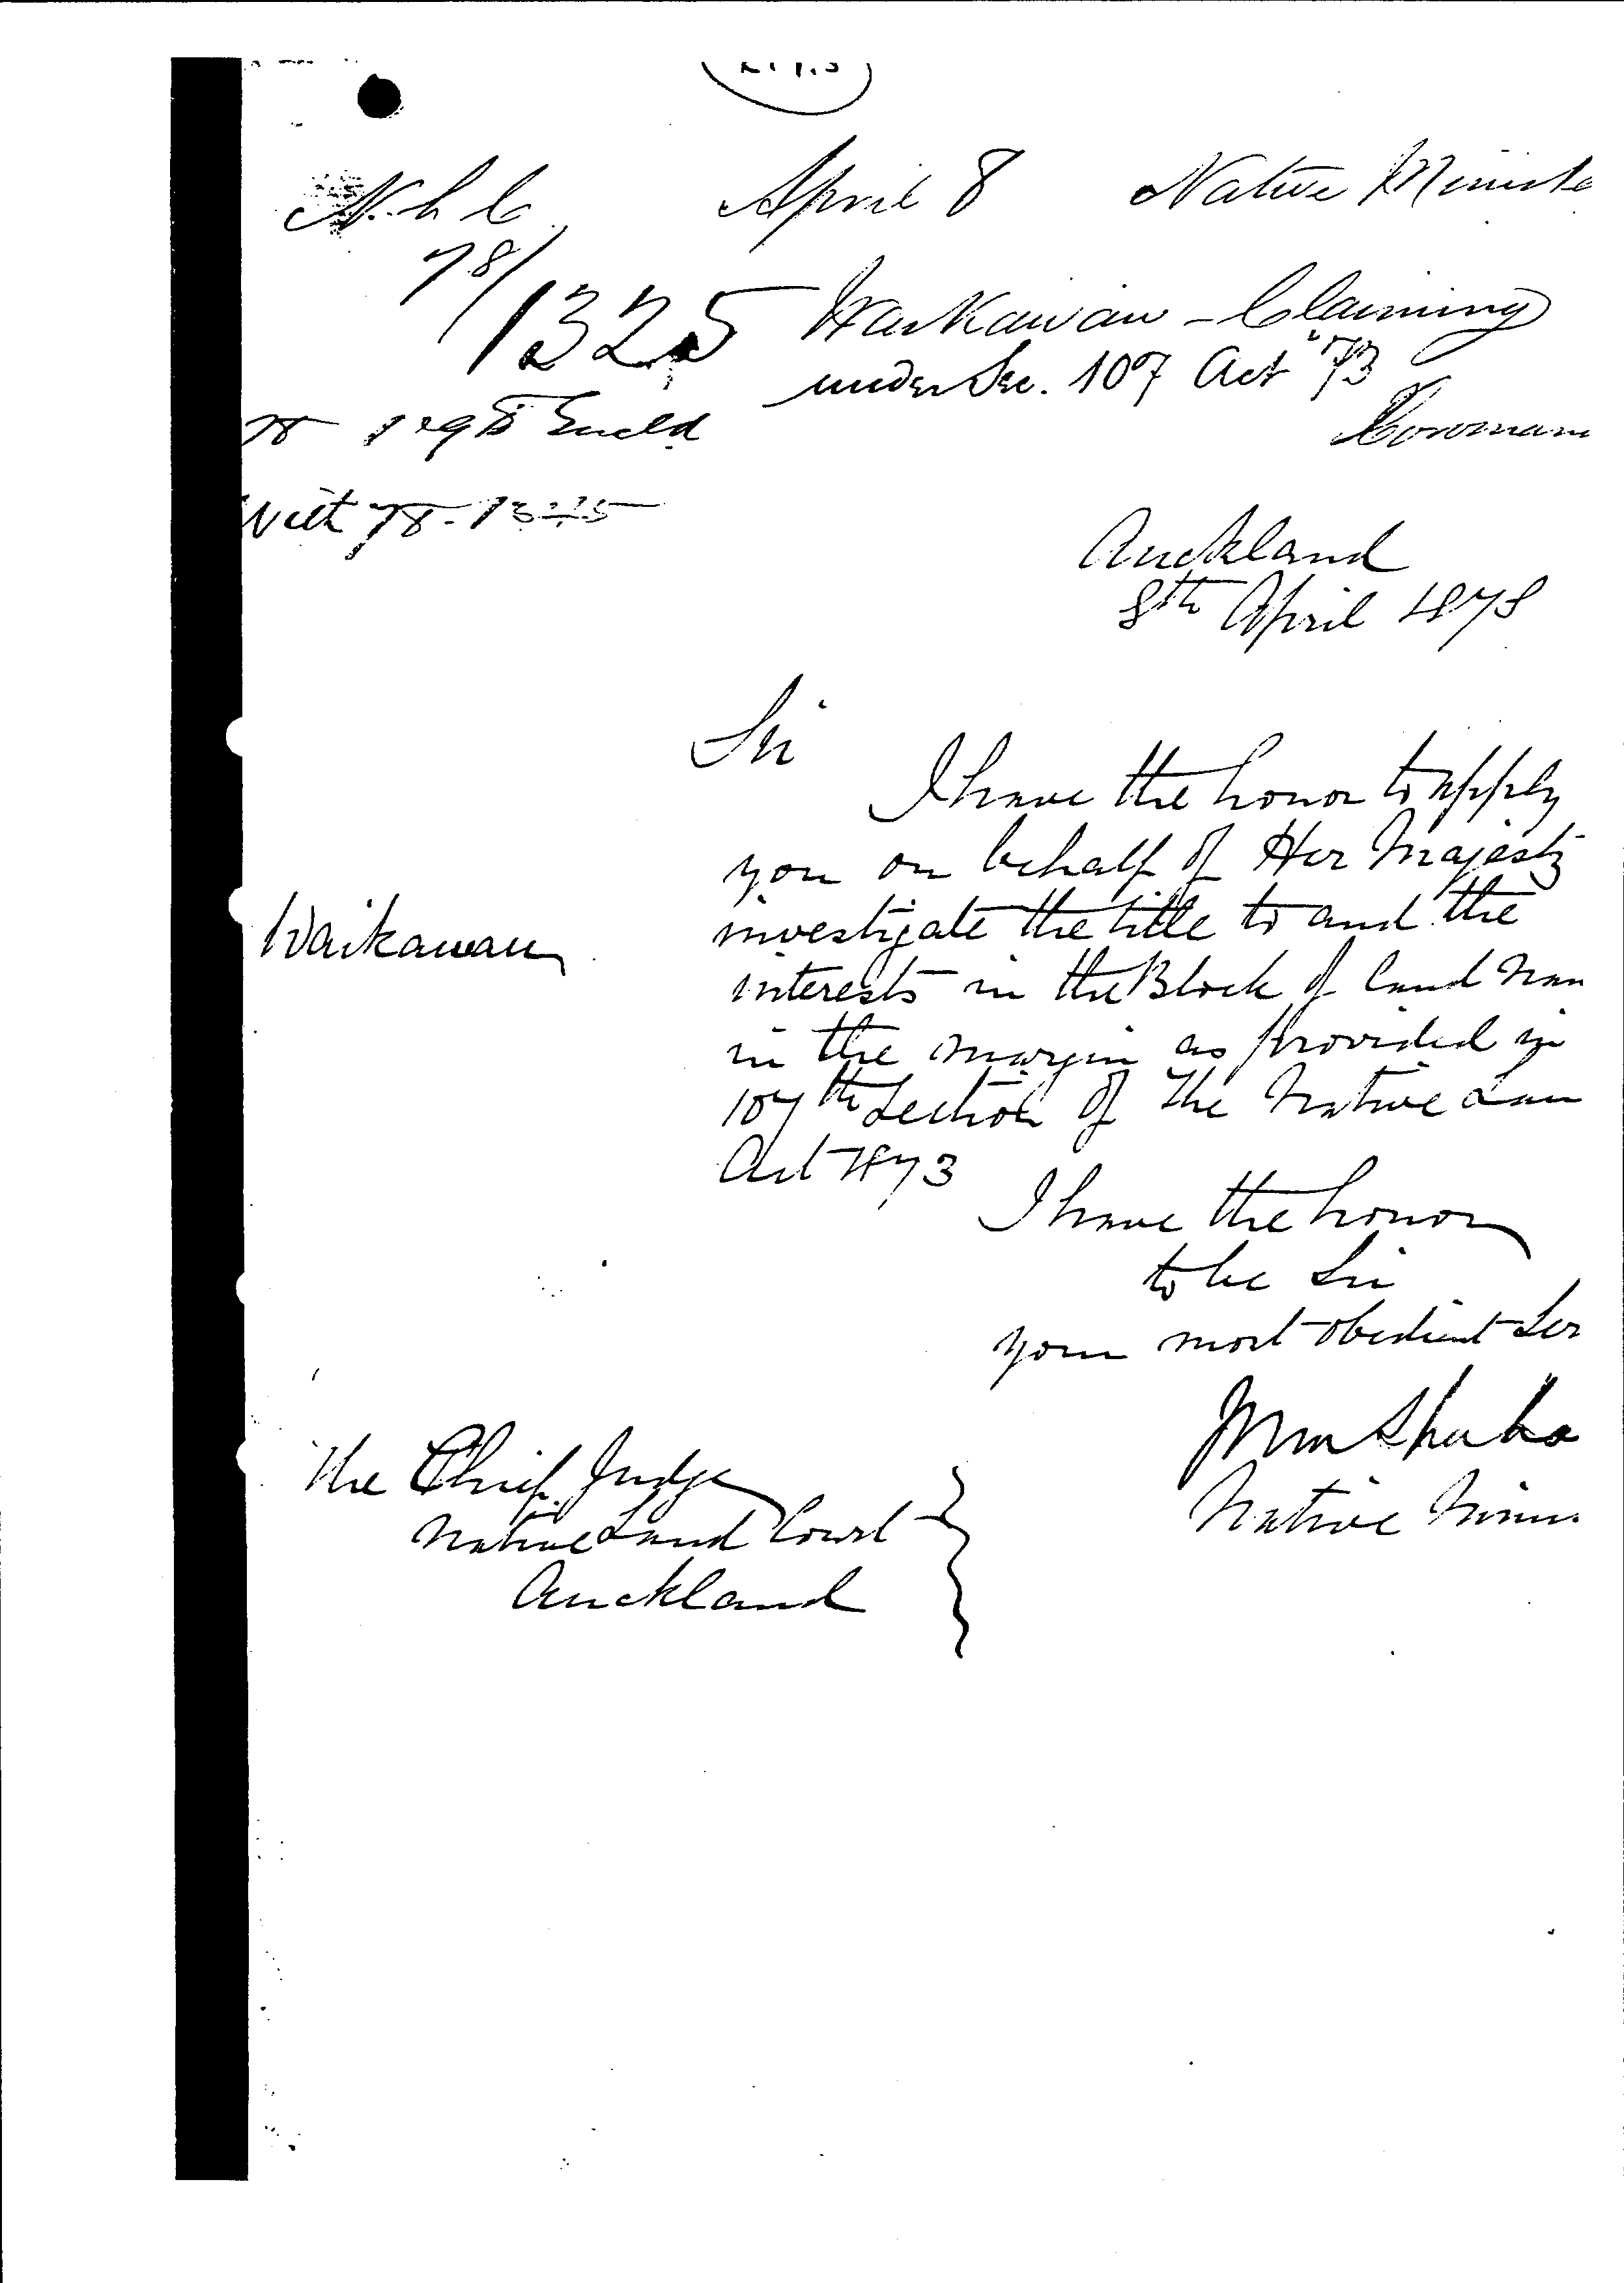 N. L. C. April 8 Native Ministe
78/1325 Waikawau - Claiming
under Sec. 107 Act '73
With 78-1325
Auckland
8th April 1878
Sir
I have the honor to apply
you on behalf of Her Majesty
investigate the title to and the
Waikawau
interests in the Block of land nam
in the margin as provided in
107th Section of The Native Lan
Act 1873
I have the honor
to be Sir
your most obedient Ser
Native Minis
The Chief Judge
Native Land Court
Auckland